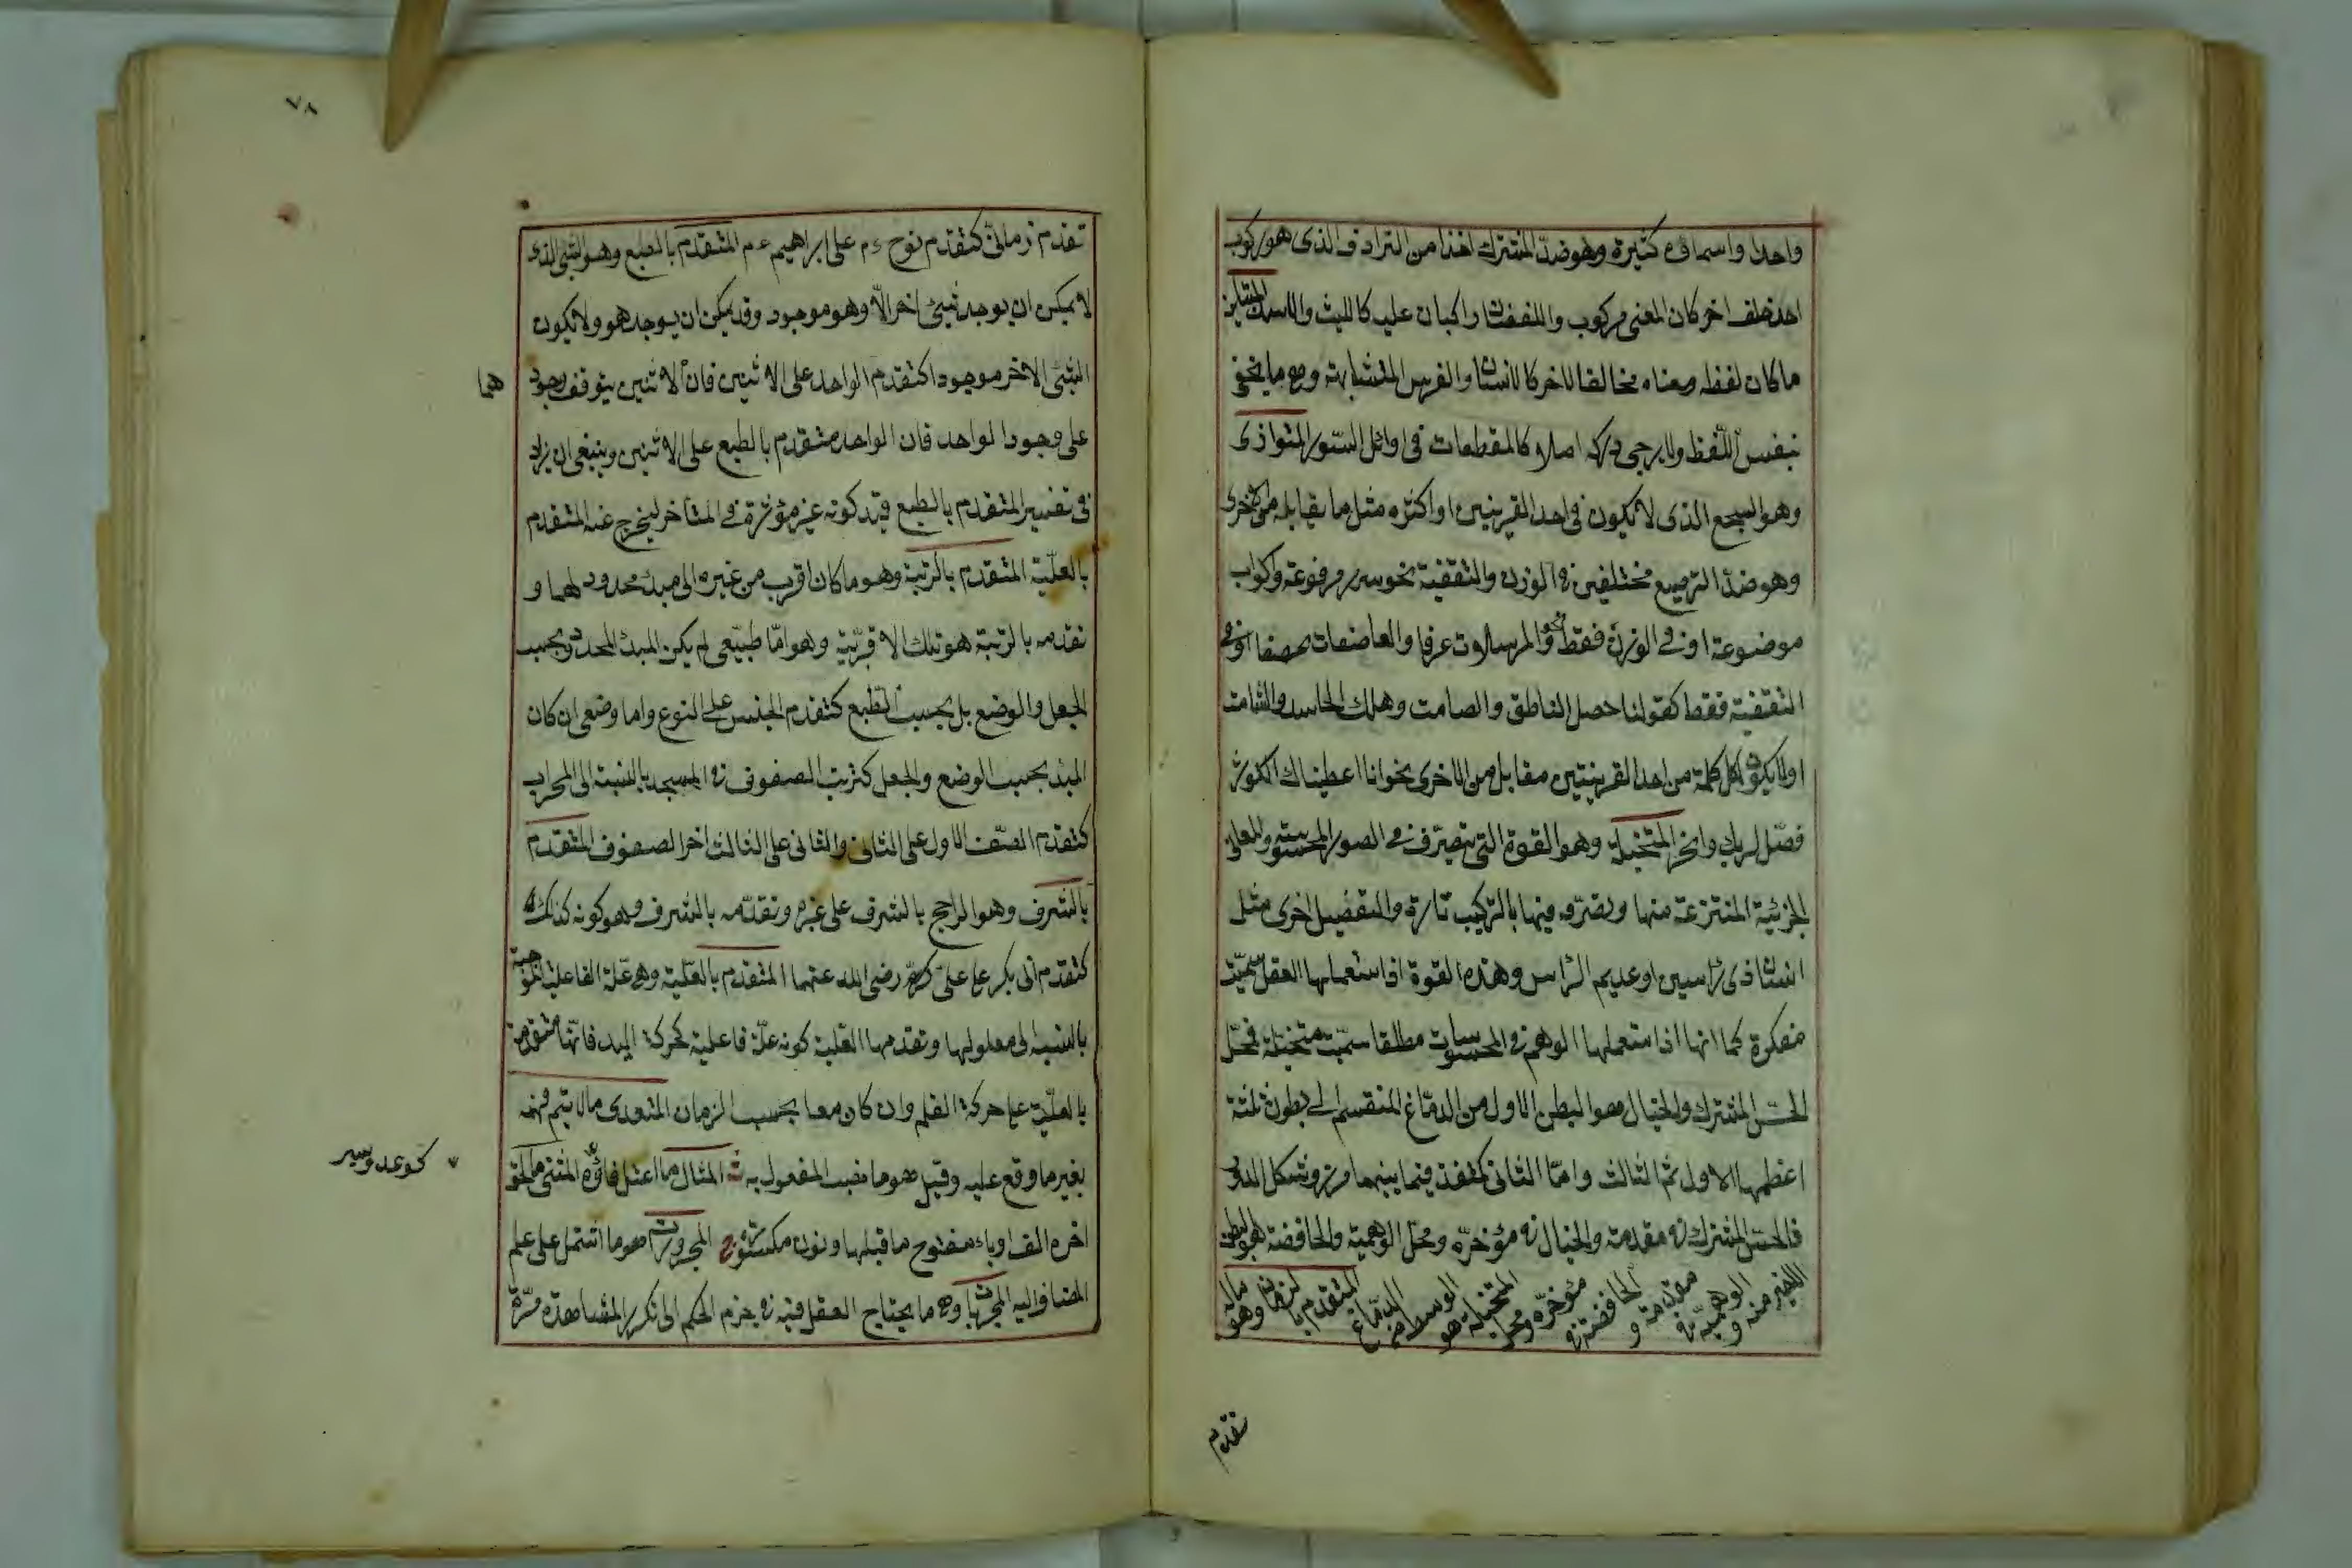 واحدا واسماؤه كثيرة وهو ضد المشترك اخذا من الترادف الذى هو ركوب
احد خلف اخر كان المعنى مركوب واللفظان راكبان عليه كالليث والاسد المتباين
ما كان لفظه ومعناه مخالفا لاخر كالانسان والفرس المتشابه وهو ما يخفى
بنفس اللفظ ولا يرجى دركه اصلا كالمقطعات فى اوائل السور المتوازى
وهو السجع الذى لا يكون فى احد القرينتين او اكثره مثل ما يقابله من الاخرى
وهو ضد الترصيع مختلفين فى الوزن والتقفية نحو سرر مرفوعة واكواب
موضوعة او فى الوزن فقط نحو والمرسلات عرفا والعاصفات عصفا او فى
التقفية فقط كقولنا حصل الناطق والصامت وهلك الحاسد والشامت
او لا يكون لكل كلمة من احد القرينتين مقابل من الاخرى نحو انا اعطيناك الكوثر
فصل لربك وانحر المتخيلة وهو القوة التى تتصرف فى الصور المحسوسة والمعانى
الجزئية المنتزعة منها وتصرفه فيها بالتركيب تارة والتفصيل اخرى مثل
انسان ذى رأسين او عديم الرأس وهذه القوة اذا استعملها العقل سميت
مفكرة كما انها اذا استعملها الوهم فى المحسوسات مطلقا سميت متخيلة فمحل
الحس المشترك والخيال هو البطن الاول من الدماغ المنقسم الى بطون ثلثة
اعظمها الاول ثم الثالث واما الثانى كمنفذ فيما بينهما مزرد بشكل الدود
فالحس المشترك فى مقدمه والخيال فى مؤخره ومحل الوهمية والحافظة هو البطن
الاخير منه والوهمية فى مقدمته والحافظة فى مؤخره ومحل المتخيلة هو الوسط من الدماغ المتقدم بالزمان وهو ماله
تقدم
٧٨
تقدم زمانى كتقدم نوح ءم على ابراهيم ءم المتقدم بالطبع وهو الشئ الذى
لا يمكن ان يوجد شئ اخر الا وهو موجود وقد يمكن ان يوجد هو ولا يكون
الشئ الاخر موجودا كتقدم الواحد على الاثنين فان الاثنين يتوقف وجودهما
على وجود الواحد فان الواحد متقدم بالطبع على الاثنين وينبغى ان يزاد
فى تفسير المتقدم بالطبع قيد كونه غير مؤثرة فى المتاخر ليخرج عنه المتقدم
بالعلية المتقدم بالرتبة وهو ما كان اقرب من غيره الى مبدء محدود لهما و
تقدمه بالرتبة هو تلك الاقربية وهو اما طبيعى لم يكن المبدء المحدود بحسب
الجعل والوضع بل بحسب الطبع كتقدم الجنس على النوع واما وضعى ان كان
المبدء بحسب الوضع والجعل كترتب الصفوف فى المسجد بالنسبة الى المحراب
كتقدم الصف الاول على الثانى والثانى على الثالث اخر الصفوف المتقدم
بالشرف وهو الراجح بالشرف على غيره وتقدمه بالشرف وهو كونه كذلك
كتقدم ابى بكر على على رضى الله عنهما المتقدم بالعلية وهو علة الفاعلية الموجبة
بالنسبة الى معلولها وتقدمها العلية كونه علة فاعلية كحركة اليد فانها متقدمة
بالعلية على حركة القلم وان كان معا بحسب الزمان المتعدى مالا يتم فهمه
بغير ما وقع عليه وقيل هو ما نصب المفعول به ث المثال ما اعتل فاؤه المثنى ما لحق
كوعد ويسر
اخره الف او ياء مفتوح ما قبلها ونون مكسورة ج المجرورات هو ما اشتمل على علم
المضاف اليه المجربات وهو ما يحتاج العقل فيه فى جزم الحكم الى تكرر المشاهدة مرة